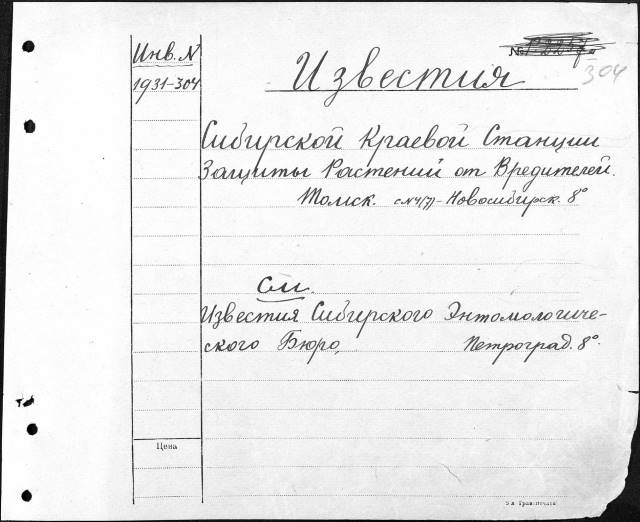 Инв. N
1931-304
№
304
Известия
Сибирской Краевой Станции
Защиты Растений от Вредителей.
Томск. с N4(7)- Новосибирск. 8°
См.
Известия Сибирского Энтомологиче-
ского Бюро, Петроград. 8°.
Цена